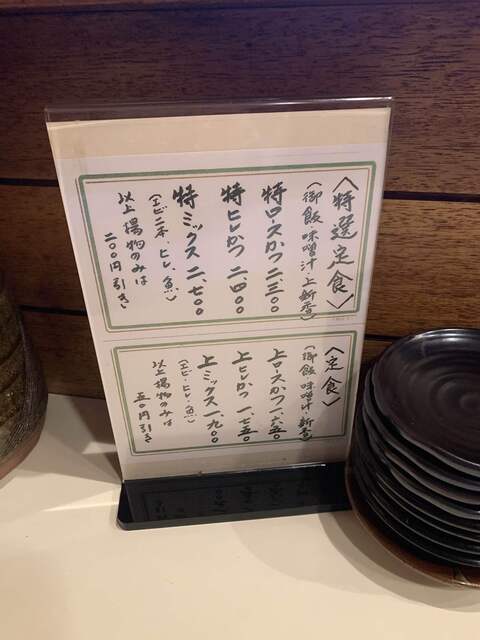 〈特選定食〉
(御飯・味噌汁・上新香)
特ロースかつ 二、三〇〇
特ヒレかつ 二、四〇〇
特ミックス 二、七〇〇
(エビ二本、ヒレ、魚)
以上揚物のみは
二〇〇円引き
〈定食〉
(御飯・味噌汁・新香)
上ロースかつ 一、六五〇
上ヒレかつ 一、七五〇
上ミックス 一、九〇〇
(エビ・ヒレ、魚)
以上揚物のみは
五〇円引き